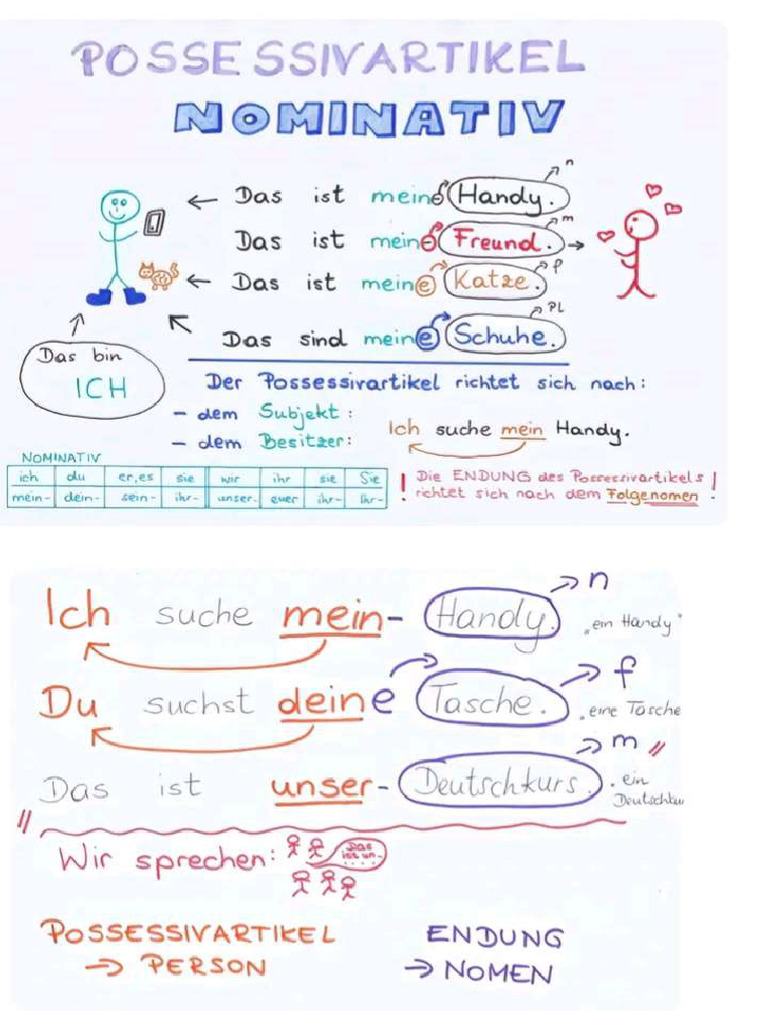 POSSESSIVARTIKEL
NOMINATIV
← Das ist mein Handy. n
Das ist mein Freund. → m
← Das ist meine Katze. f
Das sind meine Schuhe. PL
Das bin
ICH
Der Possessivartikel richtet sich nach:
- dem Subjekt:
- dem Besitzer:
Ich suche mein Handy.
NOMINATIV
ich du er,es sie wir ihr sie Sie
mein- dein- sein- ihr- unser- euer ihr- Ihr-
! Die ENDUNG des Possessivartikels !
richtet sich nach dem Folgenomen
Ich suche mein- Handy. → n
"ein Handy"
Du suchst deine Tasche. → f
eine Tasche
Das ist unser- Deutschkurs. → m
ein
Deutschku
Wir sprechen:
Das
ist un-
POSSESSIVARTIKEL
→ PERSON
ENDUNG
→ NOMEN